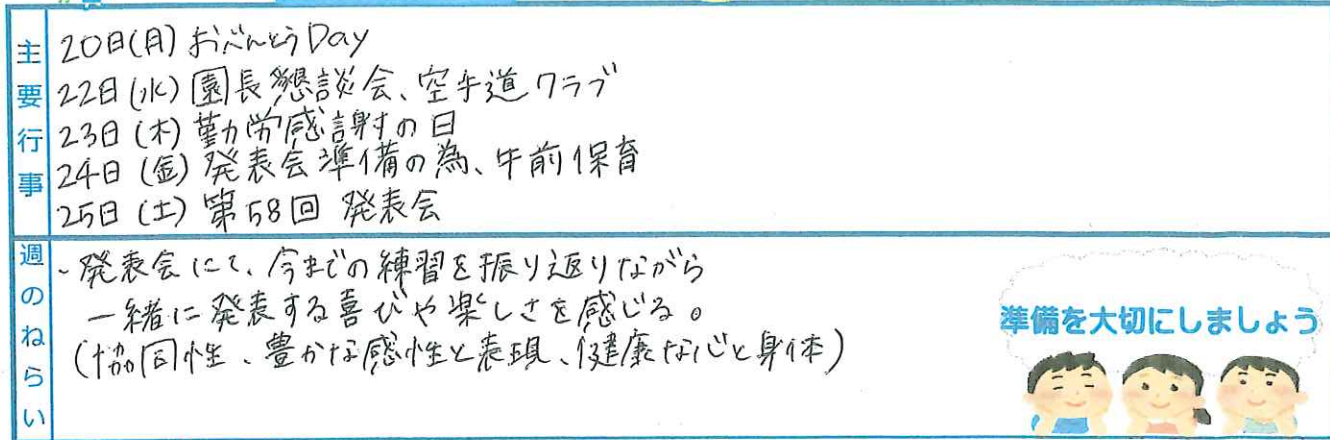 主要行事
20日(月) おべんとうDay
22日(水) 園長懇談会、空手道クラブ
23日(木) 勤労感謝の日
24日(金) 発表会準備の為、午前保育
25日(土) 第58回 発表会
週のねらい
・発表会にて、今までの練習を振り返りながら
一緒に発表する喜びや楽しさを感じる。
(協同性、豊かな感性と表現、健康な心と身体)
準備を大切にしましょう